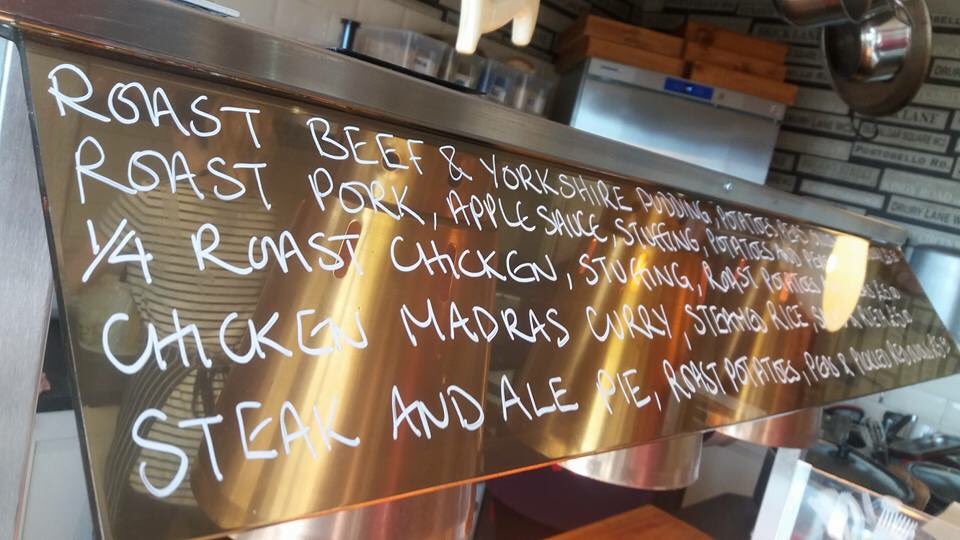 ROAST BEEF & YORKSHIRE PUDDING, POTATOES, PEAS
ROAST PORK, APPLE SAUCE, STUFFING, POTATOES AND PEAS
1/4 ROAST CHICKEN, STUFFING, ROAST POTATOES
CHICKEN MADRAS CURRY, STEAMED RICE,
STEAK AND ALE PIE, ROAST POTATOES, PEAS & PICKLED
PORTOBELLO RD.
DRURY LANE W